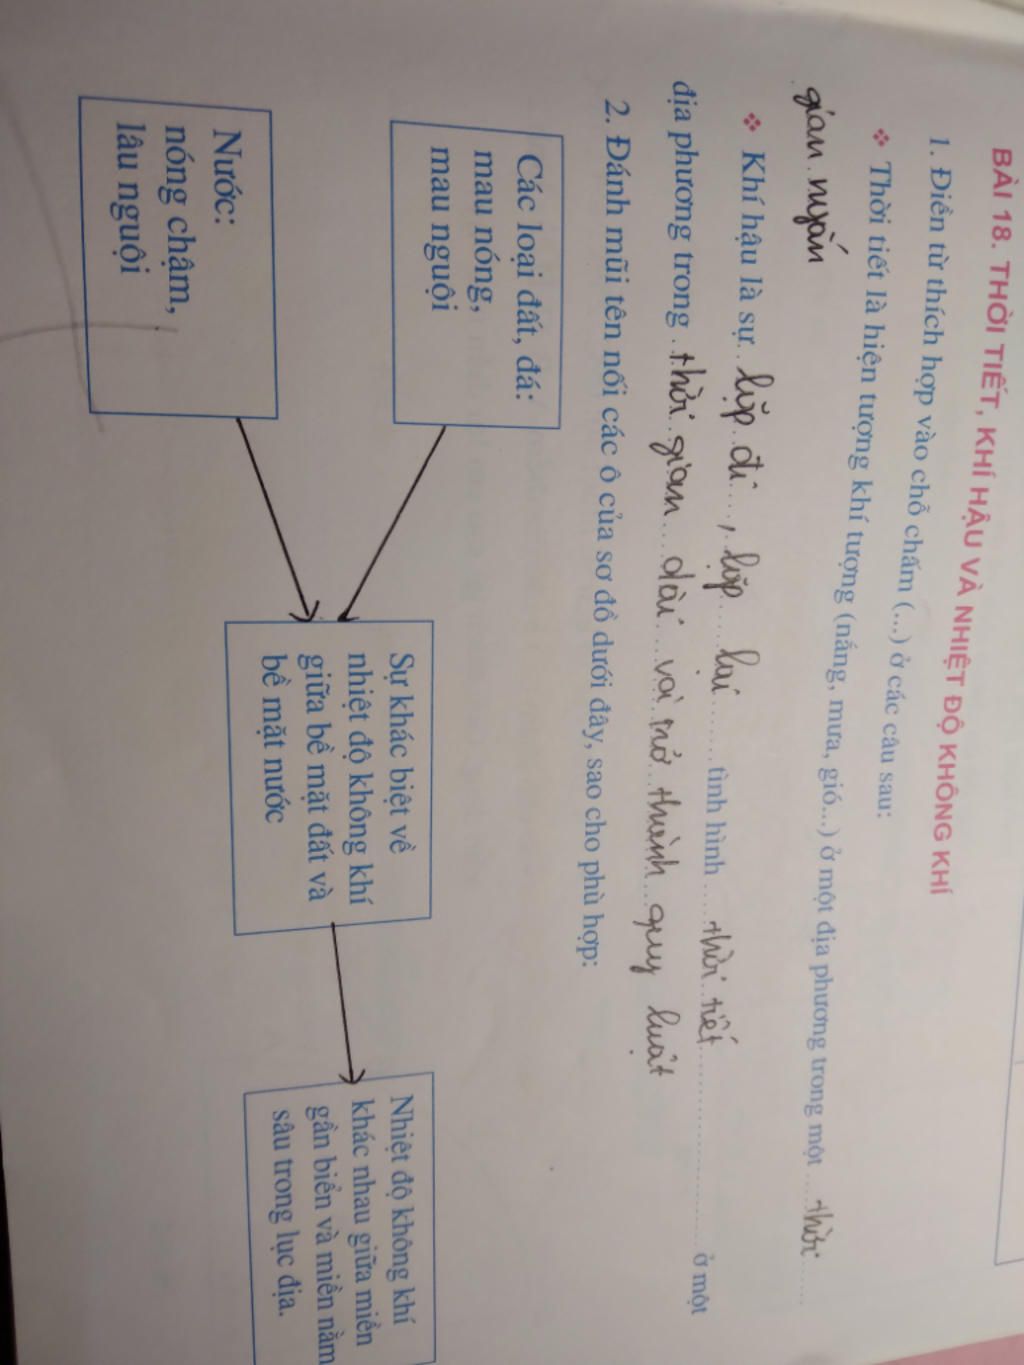 BÀI 18. THỜI TIẾT, KHÍ HẬU VÀ NHIỆT ĐỘ KHÔNG KHÍ
1. Điền từ thích hợp vào chỗ chấm (...) ở các câu sau:
❖ Thời tiết là hiện tượng khí tượng (nắng, mưa, gió...) ở một địa phương trong một ....thời......
gian ngắn
❖ Khí hậu là sự..lặp đi...., lặp......lại.......tình hình .....thời tiết.................... ở một
địa phương trong ..thời gian....dài....và trở thành quy luật
2. Đánh mũi tên nối các ô của sơ đồ dưới đây, sao cho phù hợp:
Các loại đất, đá:
mau nóng,
mau nguội
Nước:
nóng chậm,
lâu nguội
Sự khác biệt về
nhiệt độ không khí
giữa bề mặt đất và
bề mặt nước
Nhiệt độ không khí
khác nhau giữa miền
gần biển và miền nằm
sâu trong lục địa.